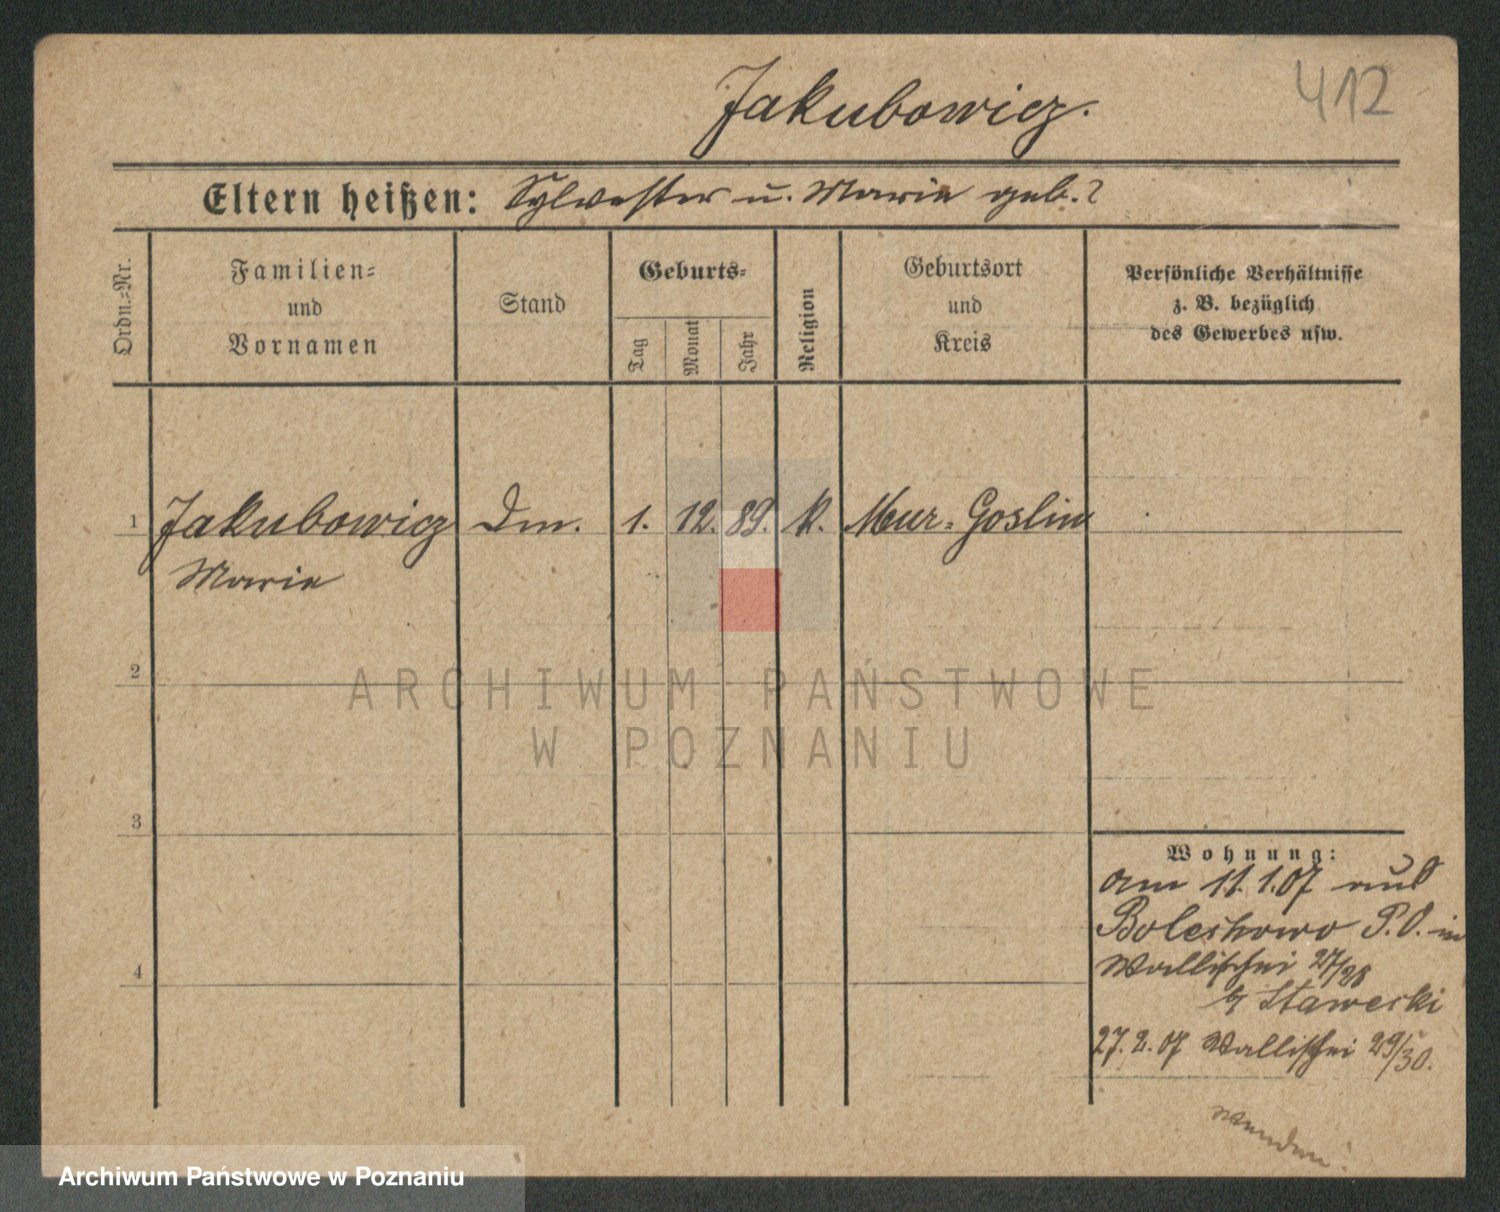 412
Jakubowicz.
Eltern heißen: Sylvester u. Marie geb. ?
Ordn.-Nr.
Familien-
und
Vornamen
Stand
Geburts-
Tag
Monat
Jahr
Religion
Geburtsort
und
Kreis
Persönliche Verhältnisse
z. B. bezüglich
des Gewerbes usw.
1 Jakubowicz Dm. 1. 12. 89. k. Mur. Goslin
Marie
2
3
4
ARCHIWUM PAŃSTWOWE
W POZNANIU
Wohnung:
am 11.1.07 aus
P.O. in
Wallischei 27/28
b/ Staweski
27.2.07 Wallischei 29/30.
wenden!
Archiwum Państwowe w Poznaniu